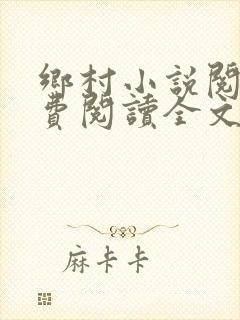 鄉村小說閱
費閱讀全文
麻卡卡